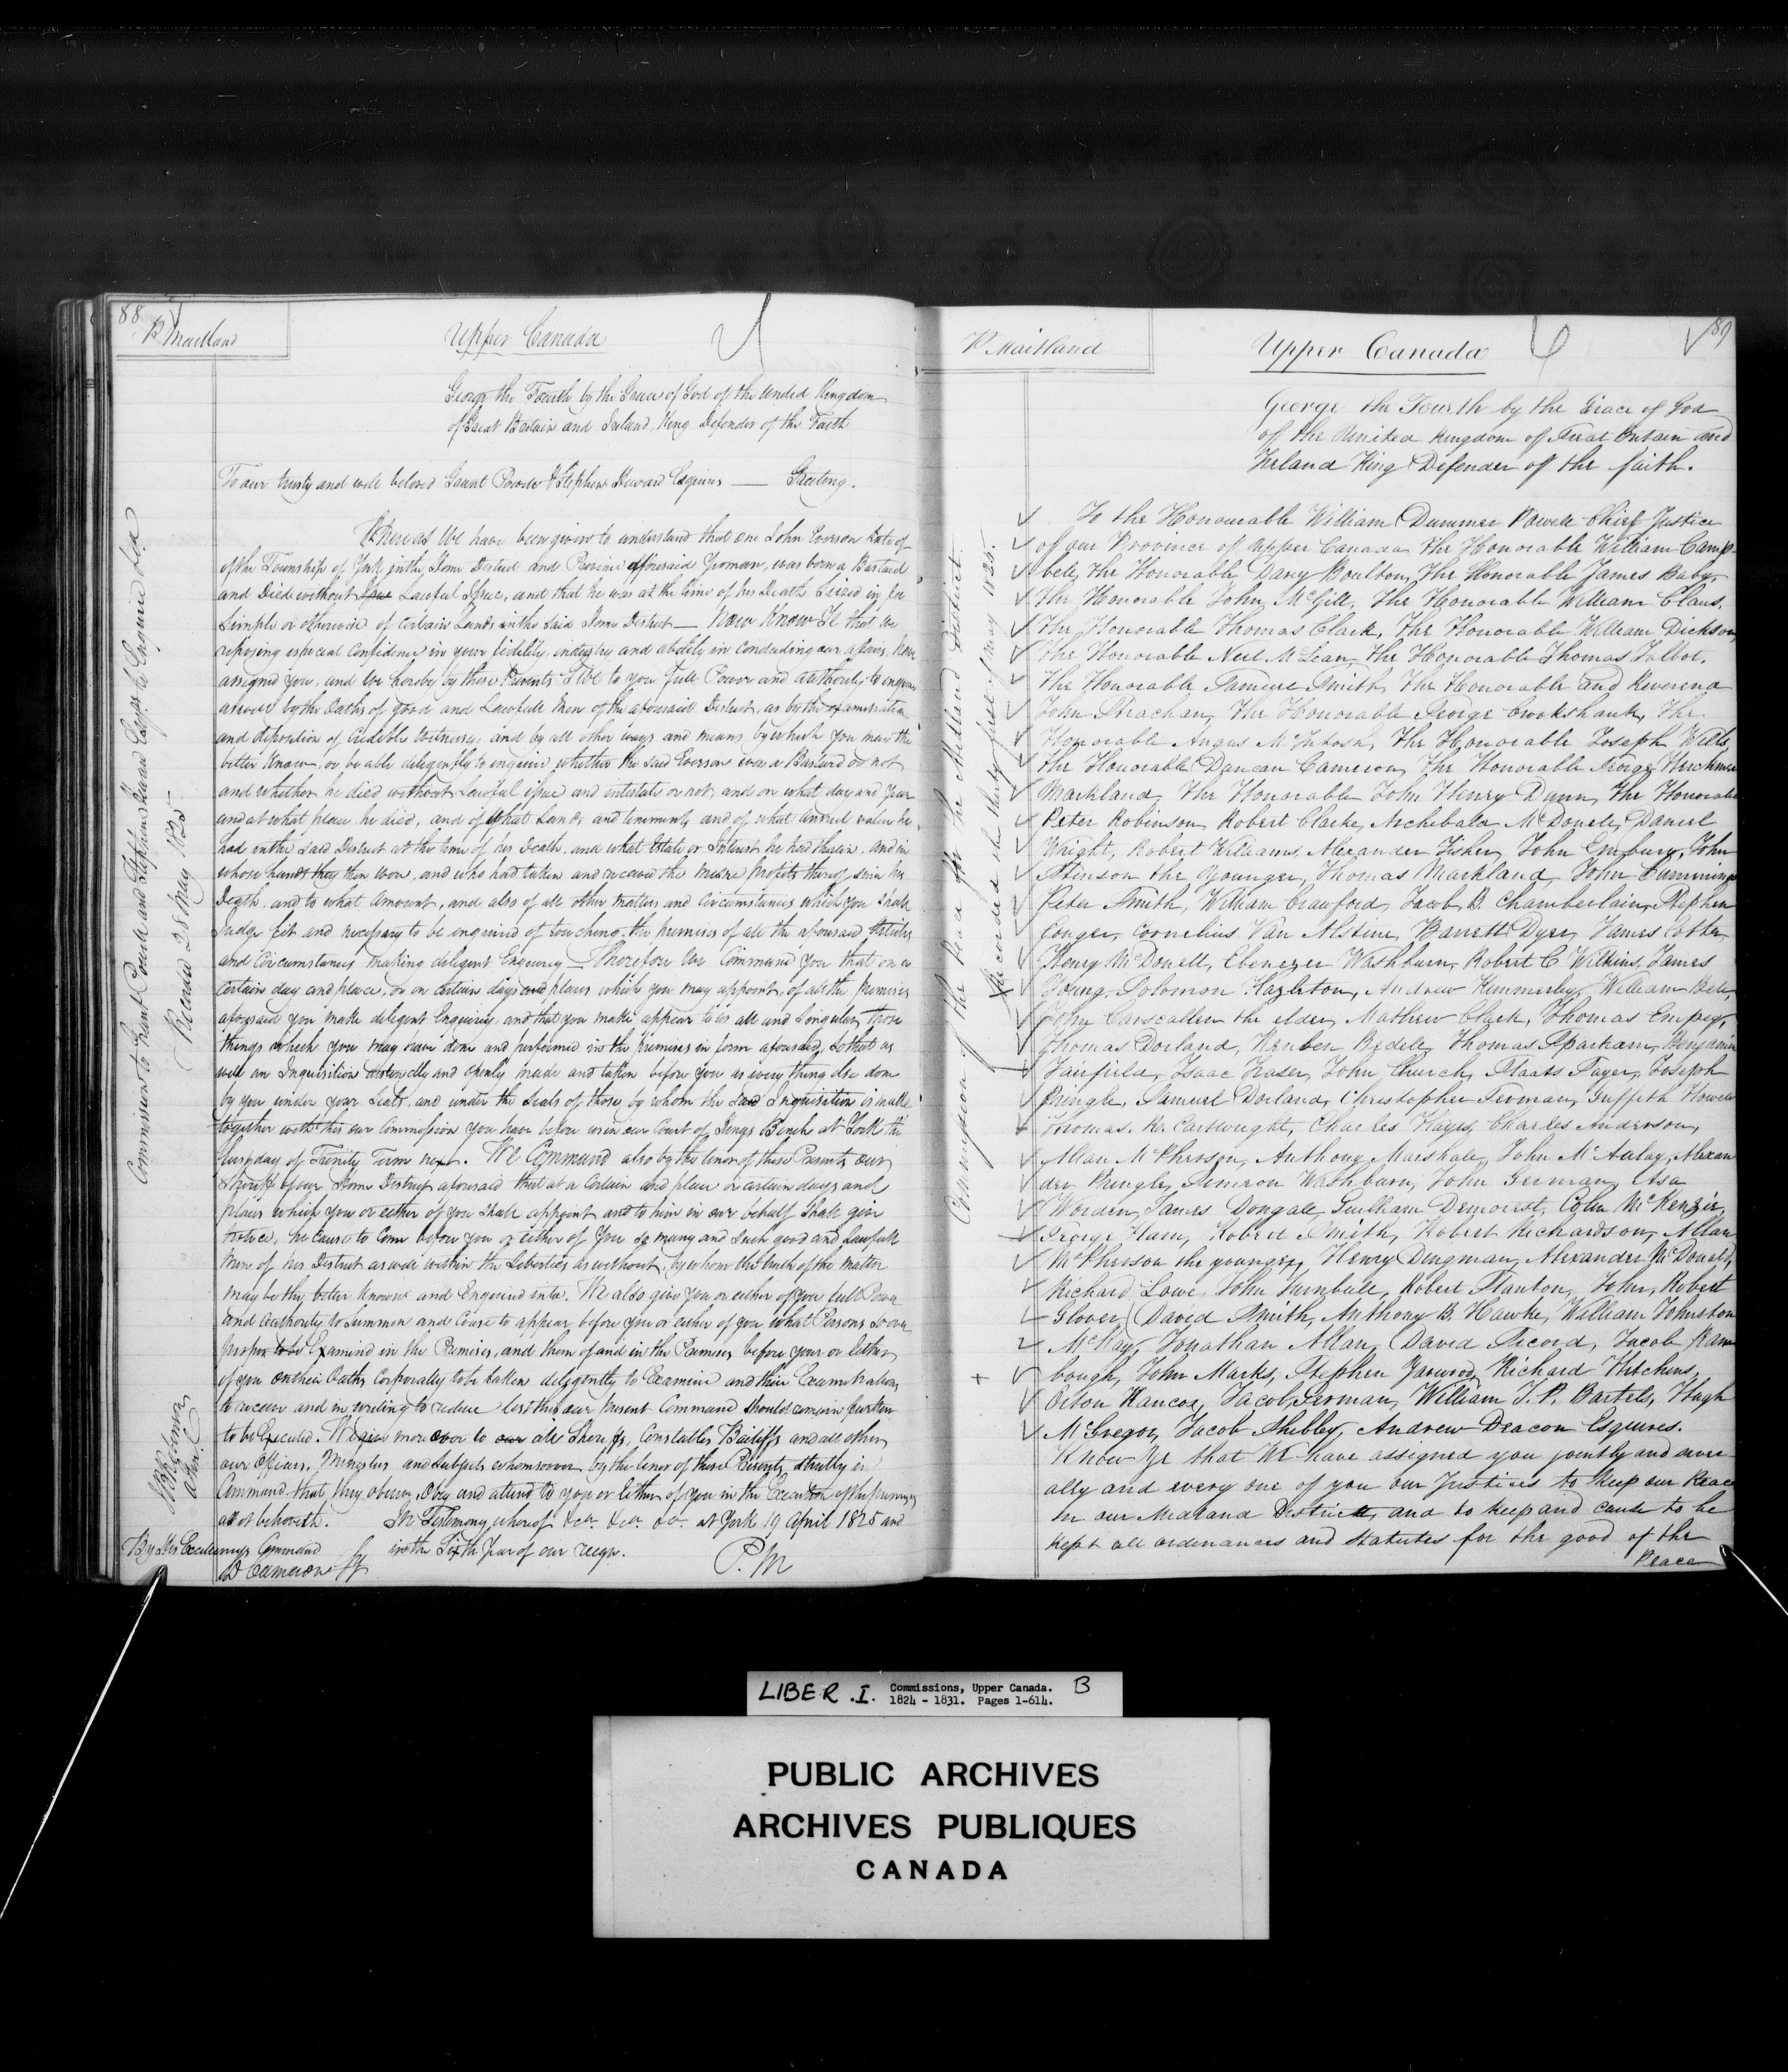 88
P Maitland
Upper Canada
George the Fourth by the Grace of God of the United Kingdom
of Great Britain and Ireland King Defender of the Faith
To our trusty and well beloved Grant Powell & Stephen Heward Esquires — Greeting.
Whereas We have been given to understand that one John Everson Late of
of the Township of York in the Home District and Province afforesaid Yeoman, was born a Bastard
and Died without Lawful Issue, and that he was at the time of his Death Seized in fee
Simple or otherwise of certain Lands in the said Home District — Now Know Ye that we
reposing especial Confidence in your fidelity, industry and ability in conducting our affairs, have
assigned you, and We hereby by these Presents Give to you full Power and authority to enquire
as well by the Oaths of good and Lawfull Men of the aforesaid District, as by the examination
and deposition of Credible Witnesses, and by all other ways and means by which you may the
better Know, or be able diligently to inquire whether the said Everson was a Bastard or not
and whether he died without Lawful issue and intestate or not, and on what day and Year
and at what place he died, and of what Lands and tenements, and of what annual value he
had in the said District at the time of his Death, and what Estate or Interest he had therein, and in
whose hands they then were, and who had taken and received the mesne profits thereof since his
Death, and to what Amount, and also of all other matters and Circumstances which you shall
Judge fit and necessary to be enquired of touching the premises of all the aforesaid Articles
and Circumstances making diligent Enquiry — Therefore We Command you that on a
certain day and place, or on certain days and places which you may appoint, of all the premises
aforesaid you make diligent Enquiries, and that you make appear to us all and Singular those
things which you may have done and performed in the premises in form aforesaid, so that as
well an Inquisition distinctly and openly made and taken before you as every thing else done
by you under your Seals, and under the Seals of those by whom the said Inquisition is made
together with this our Commission you have before us in our Court of Kings Bench at York the
day of Trinity Term next. We Command also by the tenor of these Presents our
Sheriff of our Home District aforesaid that at a Certain and place or certain days and
places which you or either of you shall appoint and to him in our behalf Shall give
Notice, he cause to Come before you or either of You so many and such good and Lawfull
Men of his District as well within the Liberties as without, by whom the truth of the matter
may be the better Known and Enquired into. We also give you or either of you full Power
and Authority to Summon and Cause to appear before you or either of you what Persons soever
proper to be Examined in the Premises, and them of and in the Premises before your or Either
of you on their Oaths Corporally to be taken deligently to Examine and their Examinations
to receive and in writing to reduce lest this our present Command should remain further
to be Executed. We give moreover to our all Sheriffs, Constables Bailiffs and all other
our Officers, Ministers and Subjects whomsoever by the tenor of these Presents strictly in
Command that they observe, obey and attend to you or Either of you in the Execution of the premises
as it behoveth. In Testimony whereof &ca. &ca. &ca. at York 19 April 1825 and
in the Sixth Year of our reign. P. M
By His Excellencys Command
D Cameron Sy
Commission to Grant Powell and Stephen Heward Esqrs. to Enquire &ca
Recorded 28 May 1825
P Maitland
Upper Canada
89
George the Fourth by the Grace of God
of the United Kingdom of Great Britain and
Ireland King Defender of the faith.
To the Honourable William Dummer Powell Chief Justice
of our Province of Upper Canada the Honorable William Camp-
bell, the Honorable Darcy Boulton, The Honorable James Baby,
The Honorable John McGill, The Honorable William Claus,
The Honorable Thomas Clark, The Honorable William Dickson,
The Honorable Neil McLean, the Honorable Thomas Talbot,
The Honorable Samuel Smith, The Honorable and Reverend
John Strachan, The Honorable George Crookshank, The
Honorable Angus McIntosh, The Honorable Joseph Wells,
The Honorable Duncan Cameron, The Honorable George Herchmer
Markland, The Honorable John Henry Dunn, The Honorable
Peter Robinson, Robert Clarke, Archibald McDonell, Daniel
Wright, Robert Williams, Alexander Fisher, John Embury, John
Stinson the younger, Thomas Markland, John Cummings
Peter Smith, William Crawford, Jacob B. Chamberlain, Stephen
Conger, Cornelius Van Alstine, Barrett Dyer, James Cotter,
Henry McDonell, Ebenezer Washburn, Robert C Wilkins, James
Young, Solomon Hazleton, Andrew Kimmerley, William Bell,
John Carscallen the elder, Mathew Clark, Thomas Empey,
Thomas Dorland, Reuben Bedell, Thomas Sparham, Benjamin
Fairfield, Isaac Fraser, John Church, Staats Fayer, Joseph
Pringle, Samuel Dorland, Christopher Froman, Griffith Howell
Thomas. R. Cartwright, Charles Hayes, Charles Anderson,
Allan McPherson, Anthony Marshall, John McAulay, Alexan
der Pringle, Simeon Washburn, John German, Asa
Worden, James Dougall, Guilliam Demorest, Colin McKenzie,
George Ham, Robert Smith, Robert Richardson, Allan
McPherson the younger, Henry Dingman, Alexander McDonald,
Richard Lowe, John Turnbull, Robert Stanton, John, Robert
Glover, David Smith, Anthony B. Hawke, William Johnston
McKay, Jonathan Allan, David Secord, Jacob Ram
bough, John Marks, Stephen Yarwood, Richard Hitchins,
Orton Hancox, Jacob German, William J. P. Bartels, Hugh
McGregor, Jacob Shibley, Andrew Deacon Esquires.
Know Ye that We have assigned you jointly and sever-
ally and every one of you our Justices to keep our Peace
in our Midland District, and to keep and cause to be
kept all ordinances and statutes for the good of the
Peace
Commission of the Peace for the Midland District
Recorded the thirty first of May 1825.
LIBER .I. Commissions, Upper Canada. B
1824 - 1831. Pages 1-614.
PUBLIC ARCHIVES
ARCHIVES PUBLIQUES
CANADA